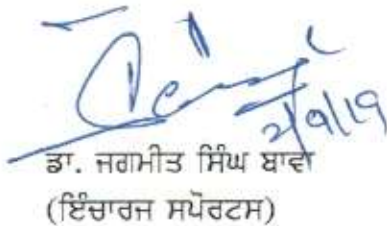 2/9/19
ਡਾ. ਜਗਮੀਤ ਸਿੰਘ ਬਾਵਾ
(ਇੰਚਾਰਜ ਸਪੋਰਟਸ)